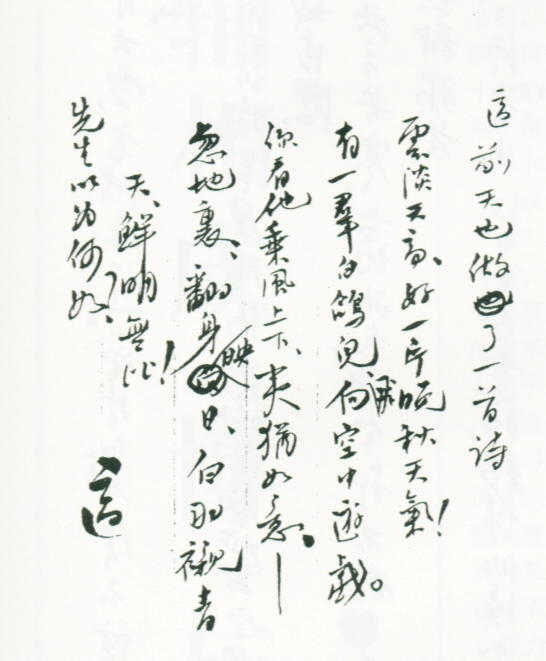 適前天也做了一首詩
雲淡天高、好一片晚秋天氣！
有一羣白鴿兒向空中遊戲。
你看他乘風上下、夷猶如意、—
忽地裏、翻身映日、白羽襯青
天、鮮明無比！
先生以為何如？
適